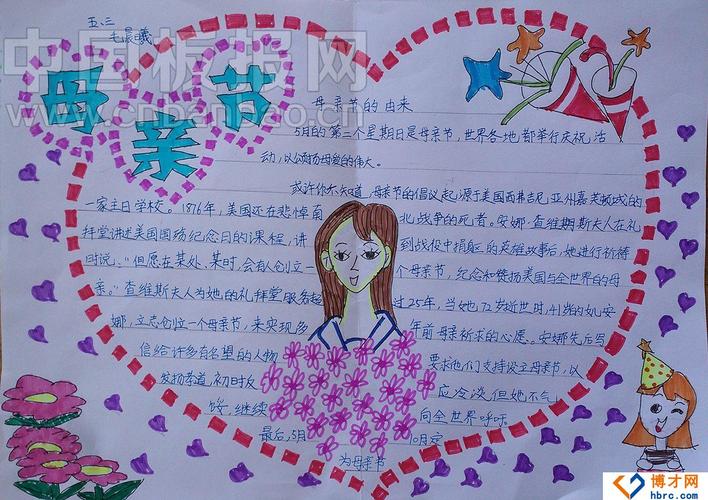 五.三
毛晨曦
中国板报网
www.cnbanbao.cn
母亲节
母亲节的由来
5月的第二个星期日是母亲节,世界各地都举行庆祝活
动,以颂扬母爱的伟大。
或许你不知道,母亲节的倡议起源于美国西弗吉尼亚州嘉芙顿城的
一家主日学校。1876年,美国还在悲悼南北战争的死者。安娜·查维期斯夫人在礼
拜堂讲述美国国殇纪念日的课程,讲到战役中捐躯的英雄故事后,她进行祈祷
时说:"但愿在某处、某时,会有人创立一个母亲节,纪念和赞扬美国与全世界的母
亲。"查维斯夫人为她的礼拜堂服务超过25年,当她72岁逝世时,41岁的女安
娜,立志创立一个母亲节,来实现多年前母亲祈求的心愿。安娜先后写
信给许多有名望的人物要求他们支持设立母亲节,以
发扬孝道,初时反应冷淡,但她不气
馁,继续向全世界呼吁。
最后,5月10月定
为母亲节
博才网
hbrc.com